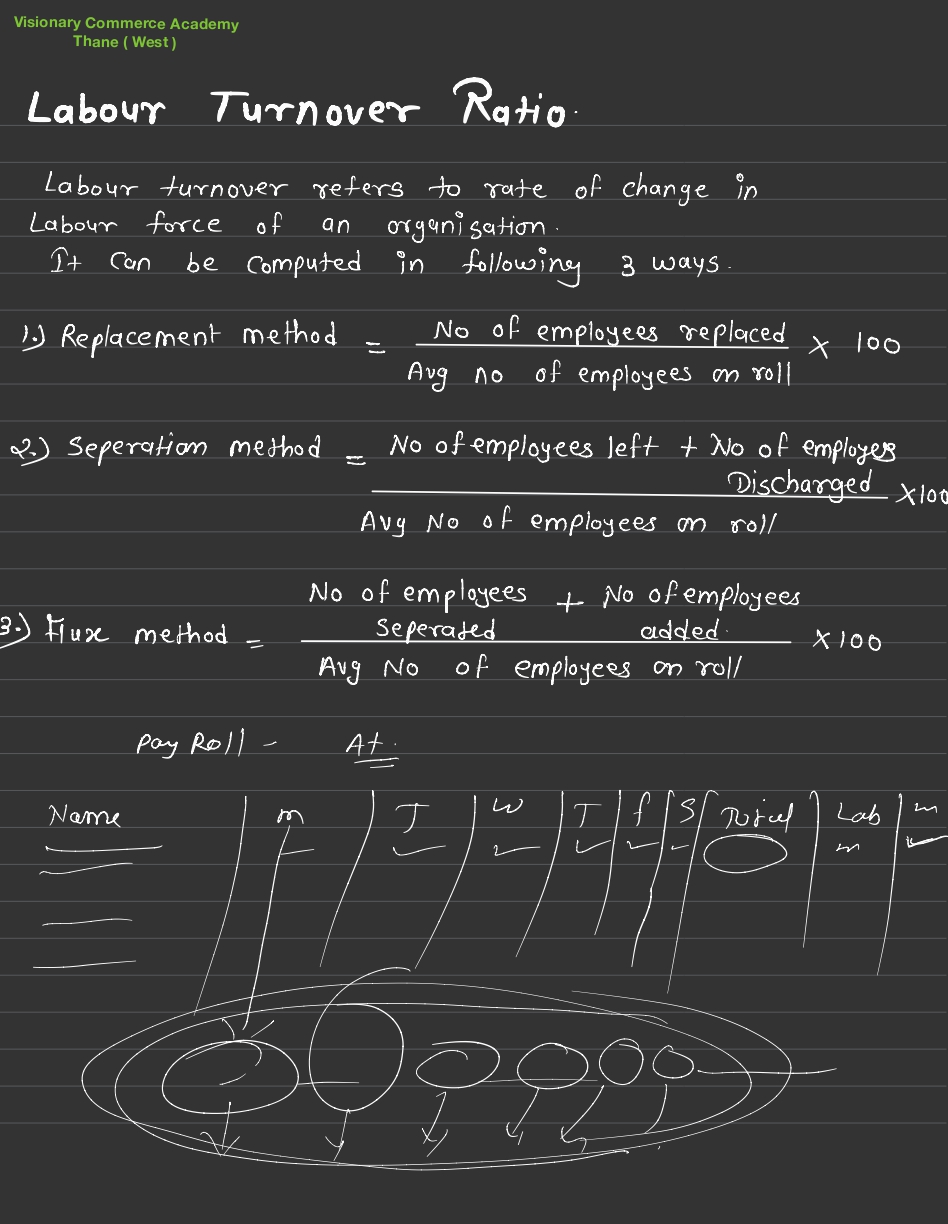 Visionary Commerce Academy
Thane ( West )
Labour Turnover Ratio.
Labour turnover refers to rate of change in
Labour force of an organisation.
It can be computed in following 3 ways.
1.) Replacement method = No of employees replaced × 100
Avg no of employees on roll
2.) Seperation method = No of employees left + No of employes
Discharged × 100
Avg No of employees on roll
No of employees + No of employees
3.) Flux method = Seperated added. × 100
Avg No of employees on roll
Pay Roll - At.
Name m T W T f S Lab m
m